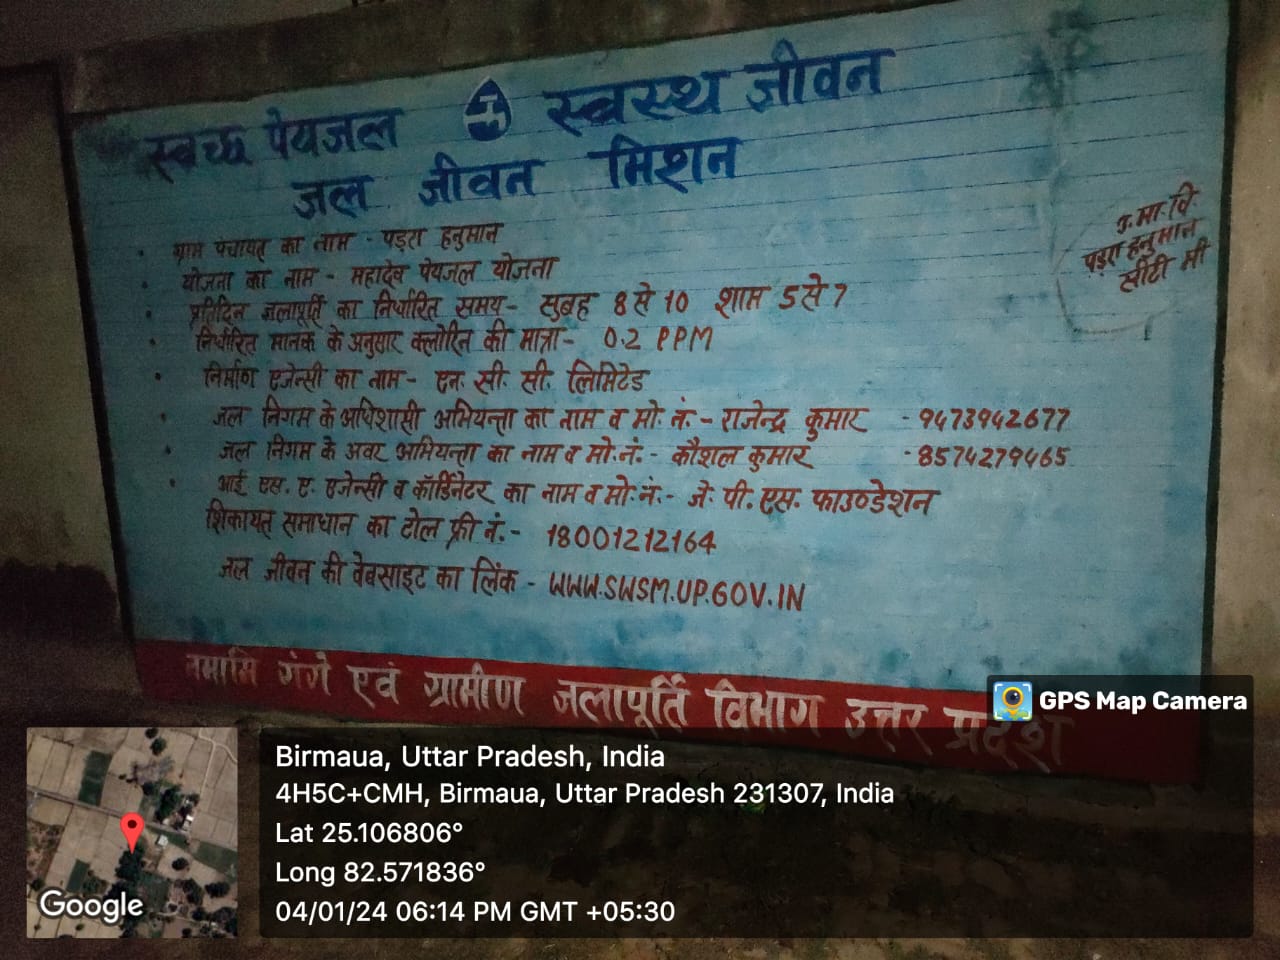 स्वच्छ पेयजल स्वस्थ जीवन
जल जीवन मिशन
ग्राम पंचायत का नाम - पड़रा हनुमान
योजना का नाम - महादेव पेयजल योजना
प्रतिदिन जलापूर्ति का निर्धारित समय - सुबह 8 से 10 शाम 5 से 7
निर्धारित मानक के अनुसार क्लोरिन की मात्रा - 0.2 PPM
निर्माण एजेन्सी का नाम - एन. सी. सी. लिमिटेड
जल निगम के अधिशासी अभियन्ता का नाम व मो. नं. - राजेन्द्र कुमार - 9473942677
जल निगम के अवर अभियन्ता का नाम व मो. नं. - कौशल कुमार - 8574279465
आई. एस. ए. एजेन्सी व कॉर्डिनेटर का नाम व मो. नं. - जे. पी. एस. फाउण्डेशन
शिकायत समाधान का टोल फ्री नं. - 18001212164
जल जीवन की वेबसाइट का लिंक - WWW.SWSM.UP.GOV.IN
नमामि गंगे एवं ग्रामीण जलापूर्ति विभाग उत्तर प्रदेश
मा. वि.
पड़रा हनुमान
सीटी
GPS Map Camera
Birmaua, Uttar Pradesh, India
4H5C+CMH, Birmaua, Uttar Pradesh 231307, India
Lat 25.106806°
Long 82.571836°
04/01/24 06:14 PM GMT +05:30
Google